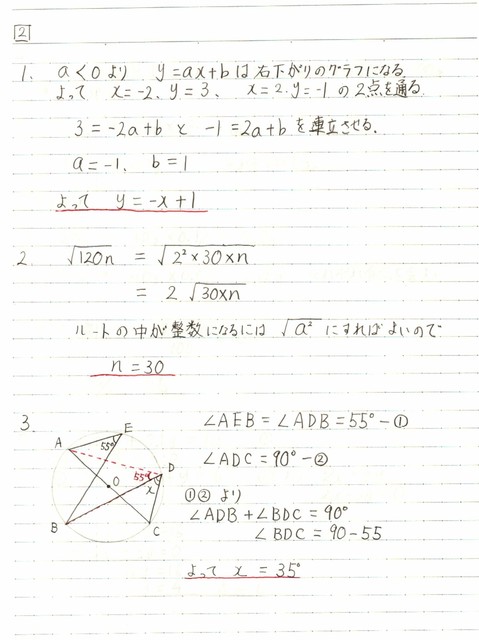 2
1. a<0より y=ax+bは右下がりのグラフになる
よって x=-2、y=3、 x=2、y=-1 の2点を通る
3=-2a+b と -1=2a+bを連立させる.
a=-1, b=1
よって y=-x+1
2. √120n = √2²×30×n
= 2 √30×n
ルートの中が整数になるには √a² にすればよいので
n=30
3. ∠AEB=∠ADB=55°-①
∠ADC=90°-②
①②より
∠ADB+∠BDC=90°
∠BDC=90-55
よって x = 35°
A
E
55°
D
55°
x
O
B
C